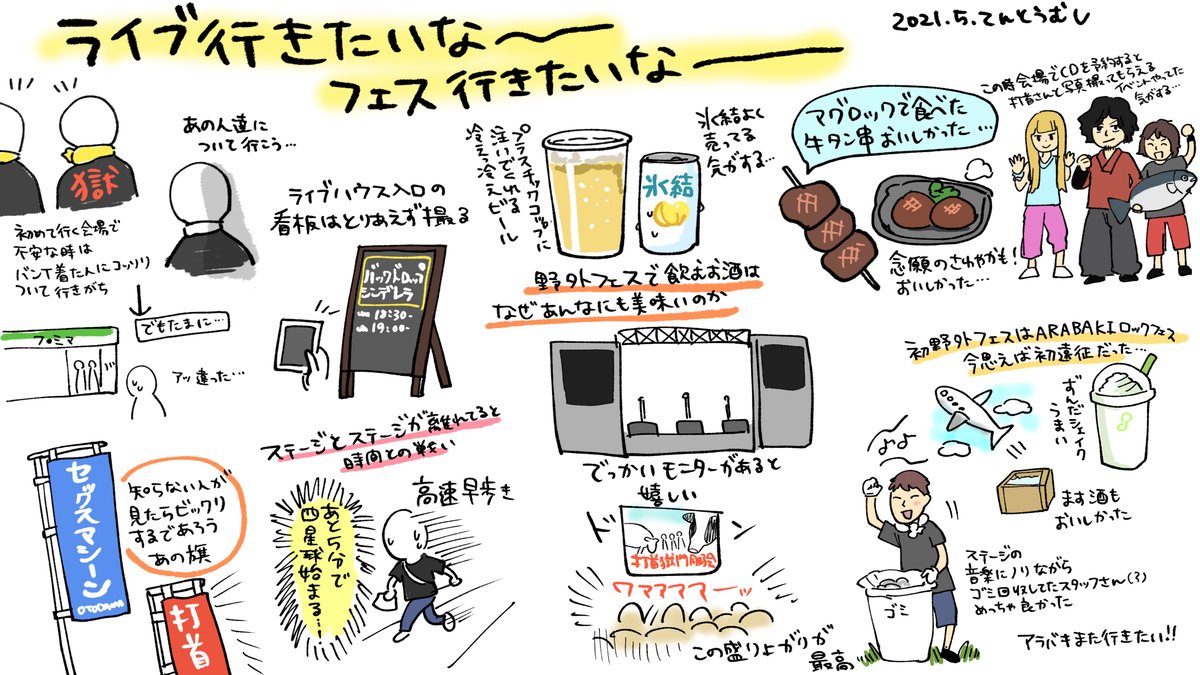 ライブ行きたいな〜
フェス行きたいなー
2021.5.てんとうむし
獄
初めて行く会場で
不安な時は
バンT着たんにコッソリ
ついて行きがち
あの人達に
ついて行こう…
でもたまに…
フミマ
アッ違った…
ライブハウス入口の
看板はとりあえず撮る
バックドロップ
シンデレラ
18:30-
19:00-
プラスチックコップに
注いでくれる
冷えっ冷えビール
氷結
氷結よく
売ってる
気がする…
野外フェスで飲むお酒は
なぜあんなにも美味いのか
マグロックで食べた
牛タン串おいしかった…
念願のさわやかも!
おいしかった…
この時会場でCDを予約すると
打首さんと写真撮ってもらえる
イベントやってた
気がする…
セックスマシーン
OTODAMA
打首
知らない人が
見たらビックリ
するであろう
あの旗
ステージとステージが離れてると
時間との戦い
高速早歩き
あと5分で
四星球始まる…!
でっかいモニターがあると
嬉しい
ドン
打首獄門同好会
ワアアアアーッ
この盛り上がりが
最高
初野外フェスはARABAKIロックフェス
今思えば初遠征だった…
ずんだシェイク
うまい
ます酒も
おいしかった
ゴミ
ステージの
音楽にノリながら
ゴミ回収してたスタッフさん(?)
めっちゃ良かった
アラバキまた行きたい!!